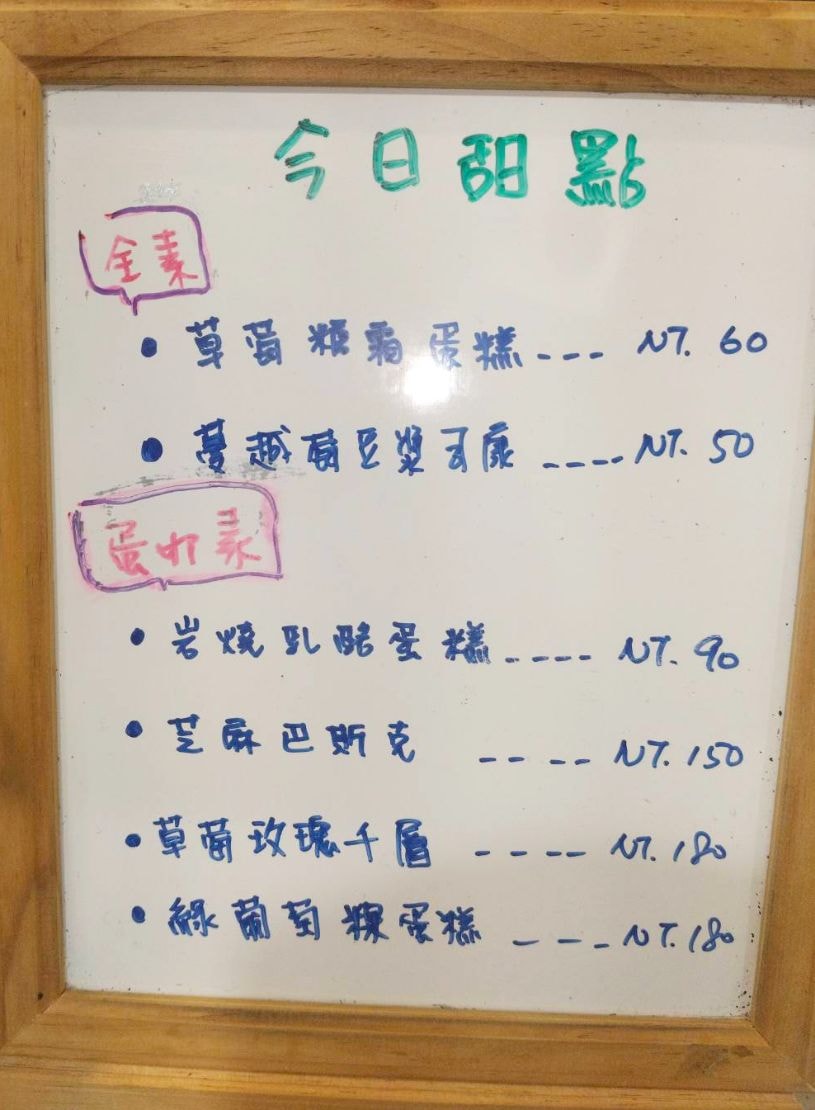 今日甜點
全素
• 草莓糖霜蛋糕 --- NT. 60
• 蔓越莓豆漿司康 ---- NT. 50
蛋奶素
• 岩燒乳酪蛋糕 ---- NT. 90
• 芝麻巴斯克 ---- NT. 150
• 草莓玫瑰千層 ---- NT. 180
• 綠葡萄粿蛋糕 --- NT. 180